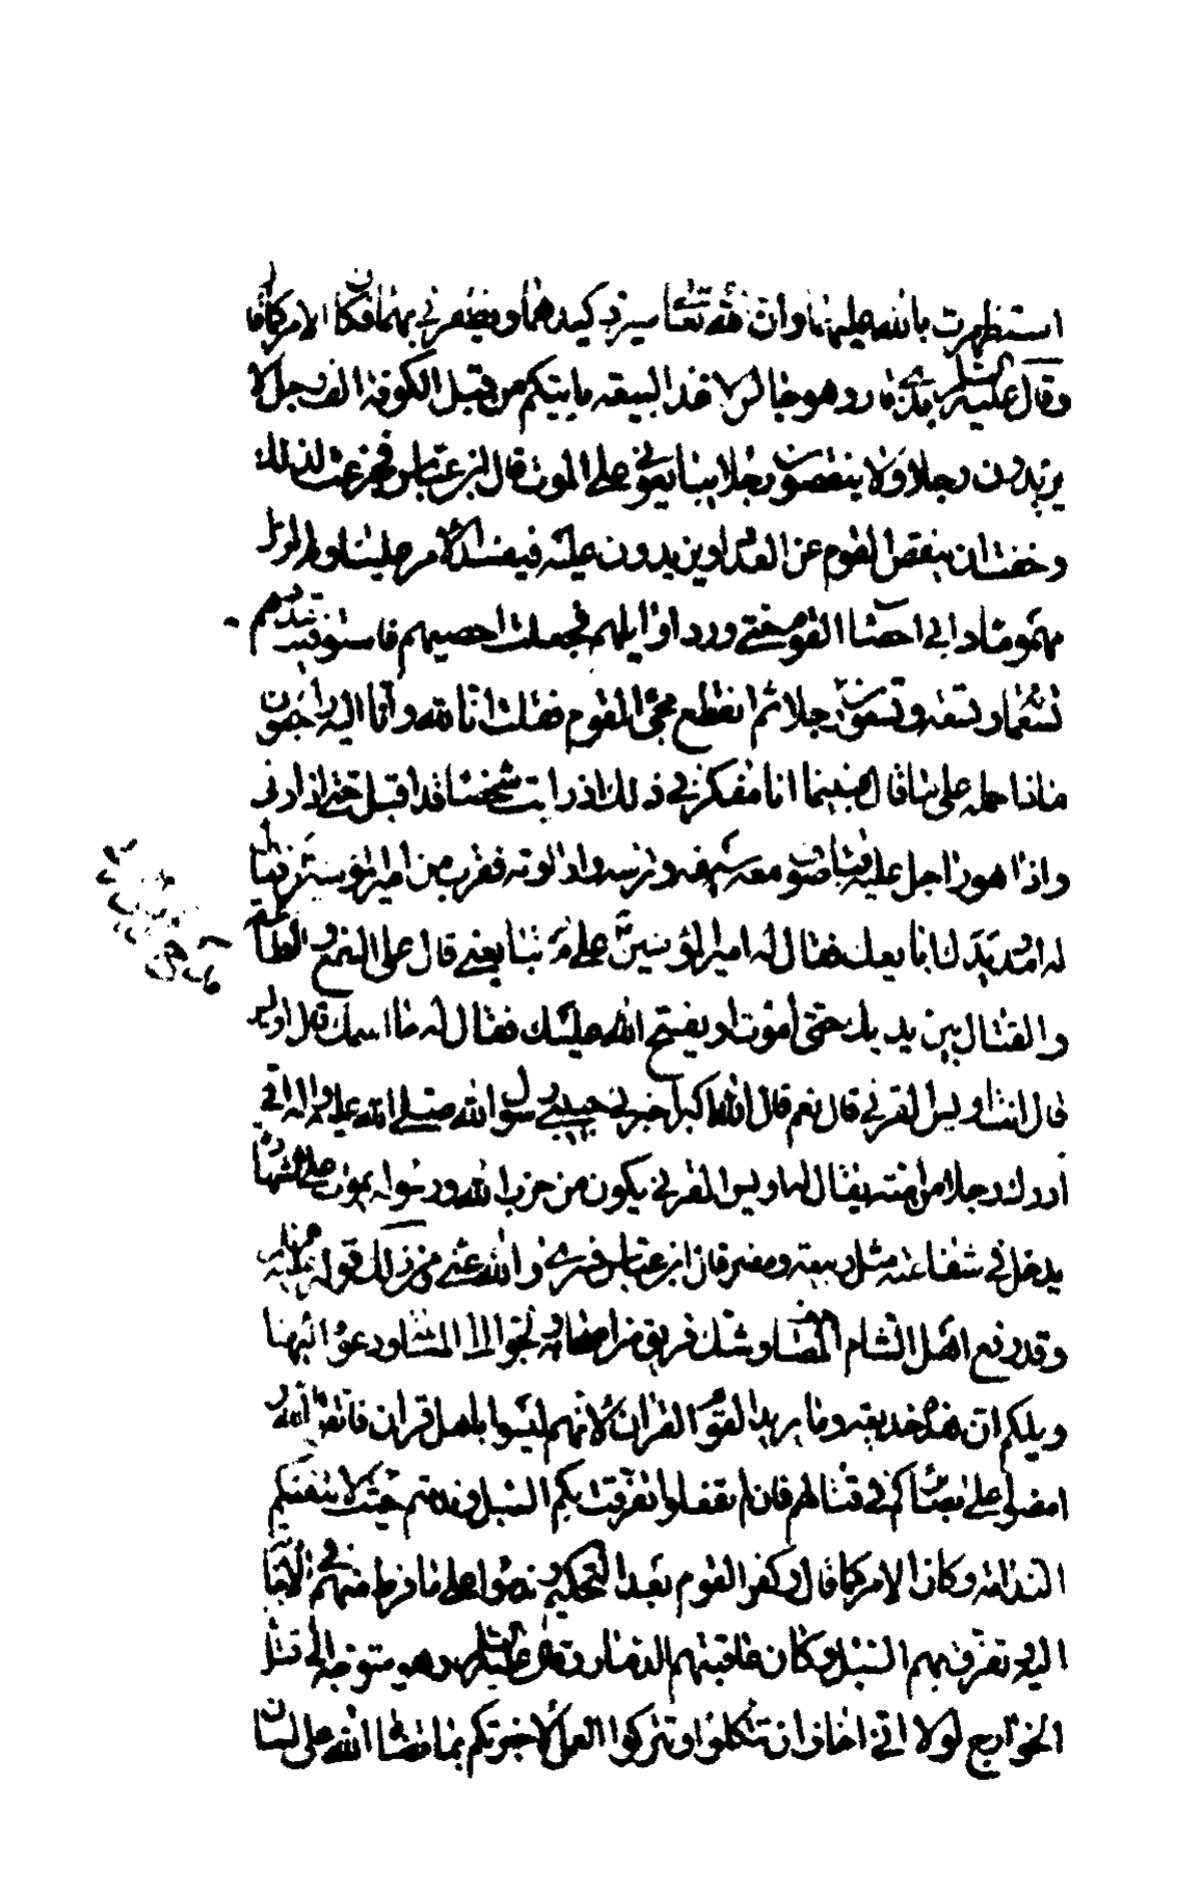 استظهرت بالله عليهما وان الله تعالى سيرد كيدهما ويظفرني بهما فكان الامر كما قال
وقال عليه السلم بذي قار وهو جالس لاخذ البيعة ياتيكم من قبل الكوفة الف رجل لا
يزيدون رجلا ولا ينقصون رجلا يبايعوني على الموت قال ابن عباس فجزعت لذلك
وخفت ان ينقص القوم عن العدد او يزيدون عليه فيفسد الامر علينا ولم ازل
مهموما دابي احصاء القوم حتى ورد اوايلهم فجعلت احصيهم فاستوفيت عددهم
تسعماية وتسعة وتسعون رجلا ثم انقطع مجئ القوم فقلت انا لله وانا اليه راجعون
ماذا حمله على ما قال فبينما انا مفكر في ذلك اذ رايت شخصا قد اقبل حتى اذا دنى
واذا هو راجل عليه قباء صوف معه سيفه وترسه واداوته فقرب من امير المؤمنين فقال
له امدد يدك ابايعك فقال له امير المؤمنين على م تبايعني قال على السمع والطاعة
والقتال بين يديك حتى اموت او يفتح الله عليك فقال له ما اسمك قال اويس
قال انت اويس القرني قال نعم قال الله اكبر اخبرني حبيبي رسول الله صلى الله عليه واله اني
ادرك رجلا من امته يقال له اويس القرني يكون من حزب الله ورسوله يموت على الشهادة
يدخل في شفاعته مثل ربيعة ومضر قال ابن عباس فسري والله عني ومن ذلك قوله
وقد رفع اهل الشام المصاحف وشك فريق من اصحابه ولجوا الى المسالمة ودعوه اليها
ويلكم ان هذه خديعة وما يريد القوم القران لانهم ليسوا باهل قران فاتقوا الله
امضوا على بصائركم في قتالهم فان لم تفعلوا تفرقت بكم السبل وندمتم حيث لا ينفعكم
الندامة وكان الامر كما قال وكفر القوم بعد التحكيم وندموا على ما فرط منهم في الاجابة
اليه وتفرق بهم السبل وكان عاقبتهم الدمار وقال عليه السلم وهو متوجه الى قتال
الخوارج لولا اني اخاف ان تتكلوا وتتركوا العمل لاخبرتكم بما قضاه الله على لسان